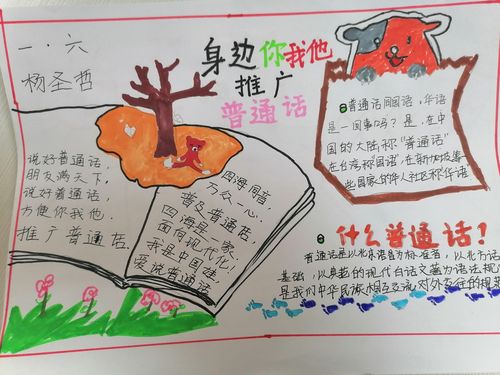 一·六
杨圣哲
身边你我他
推广
普通话
普通话同国语，华语
是一回事吗？是，在中
国的大陆称"普通话"
在台湾称国语，在新加坡等
些国家的华人社区称华语
说好普通话，
朋友满天下，
说好普通话，
方便你我他，
推广普通话
四海同音
万众一心，
普及普通话，
四海是一家，
面向现代化，
我是中国娃，
爱说普通话
什么普通话！
普通话是以北京语音为标准音，以北方话
基础，以典范的现代白话文著为语法规
是我们中华民族相互交流对外交往的规范